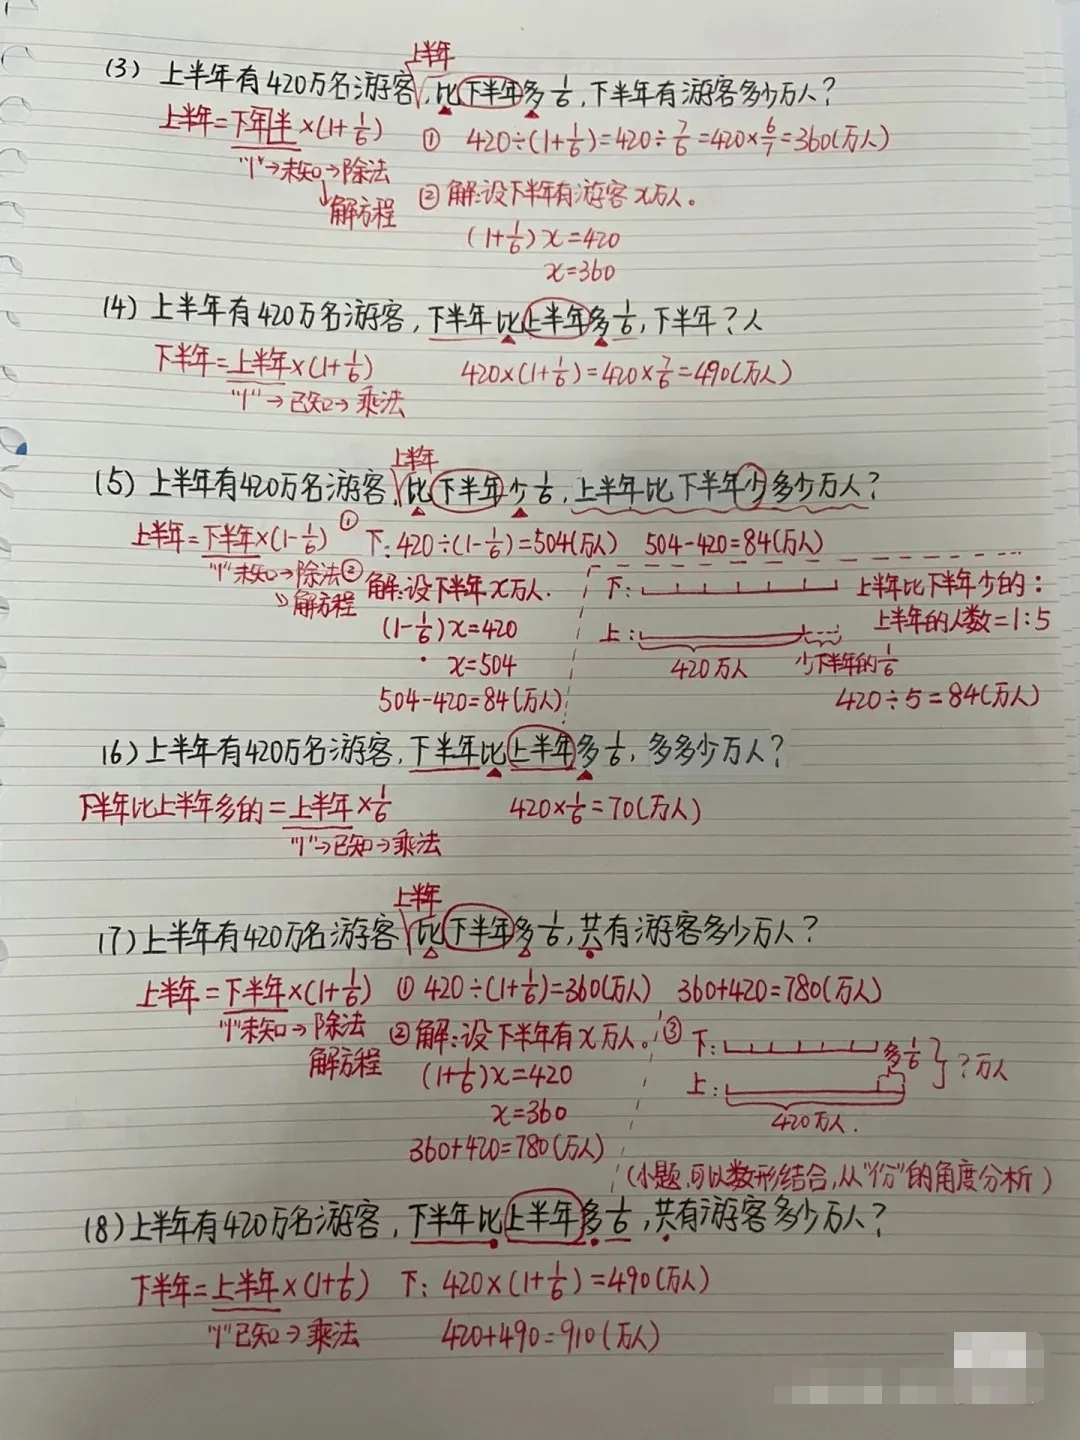 上半年
(3) 上半年有420万名游客, 比下半年多1/6, 下半年有游客多少万人?
上半年=下半年×(1+1/6) ① 420÷(1+1/6)=420÷7/6=420×6/7=360(万人)
"1"→未知→除法
②解:设下半年有游客x万人。
↓解方程
(1+1/6)x=420
x=360
(4) 上半年有420万名游客, 下半年比上半年多1/6, 下半年?人
下半年=上半年×(1+1/6) 420×(1+1/6)=420×7/6=490(万人)
"1"→已知→乘法
上半年
(5) 上半年有420万名游客, 比下半年少1/6, 上半年比下半年少多少万人?
上半年=下半年×(1-1/6) ① 下:420÷(1-1/6)=504(万人) 504-420=84(万人)
"1"未知→除法② 解:设下半年x万人. 下: 上半年比下半年少的:
↘解方程
(1-1/6)x=420 上: 上半年的人数=1:5
x=504 420万人 少下半年的1/6
504-420=84(万人) 420÷5=84(万人)
(6) 上半年有420万名游客, 下半年比上半年多1/6, 多多少万人?
下半年比上半年多的=上半年×1/6 420×1/6=70(万人)
"1"→已知→乘法
上半年
(7) 上半年有420万名游客 比下半年多1/6, 共有游客多少万人?
上半年=下半年×(1+1/6) ① 420÷(1+1/6)=360(万人) 360+420=780(万人)
"1"未知→除法 ②解:设下半年有x万人。 ③ 下: 多1/6 ?万人
解方程 (1+1/6)x=420 上:
x=360 420万人.
360+420=780(万人)
(小题,可以数形结合,从"份"的角度分析)
(8) 上半年有420万名游客, 下半年比上半年多1/6, 共有游客多少万人?
下半年=上半年×(1+1/6) 下: 420×(1+1/6)=490(万人)
"1"已知→乘法 420+490=910(万人)